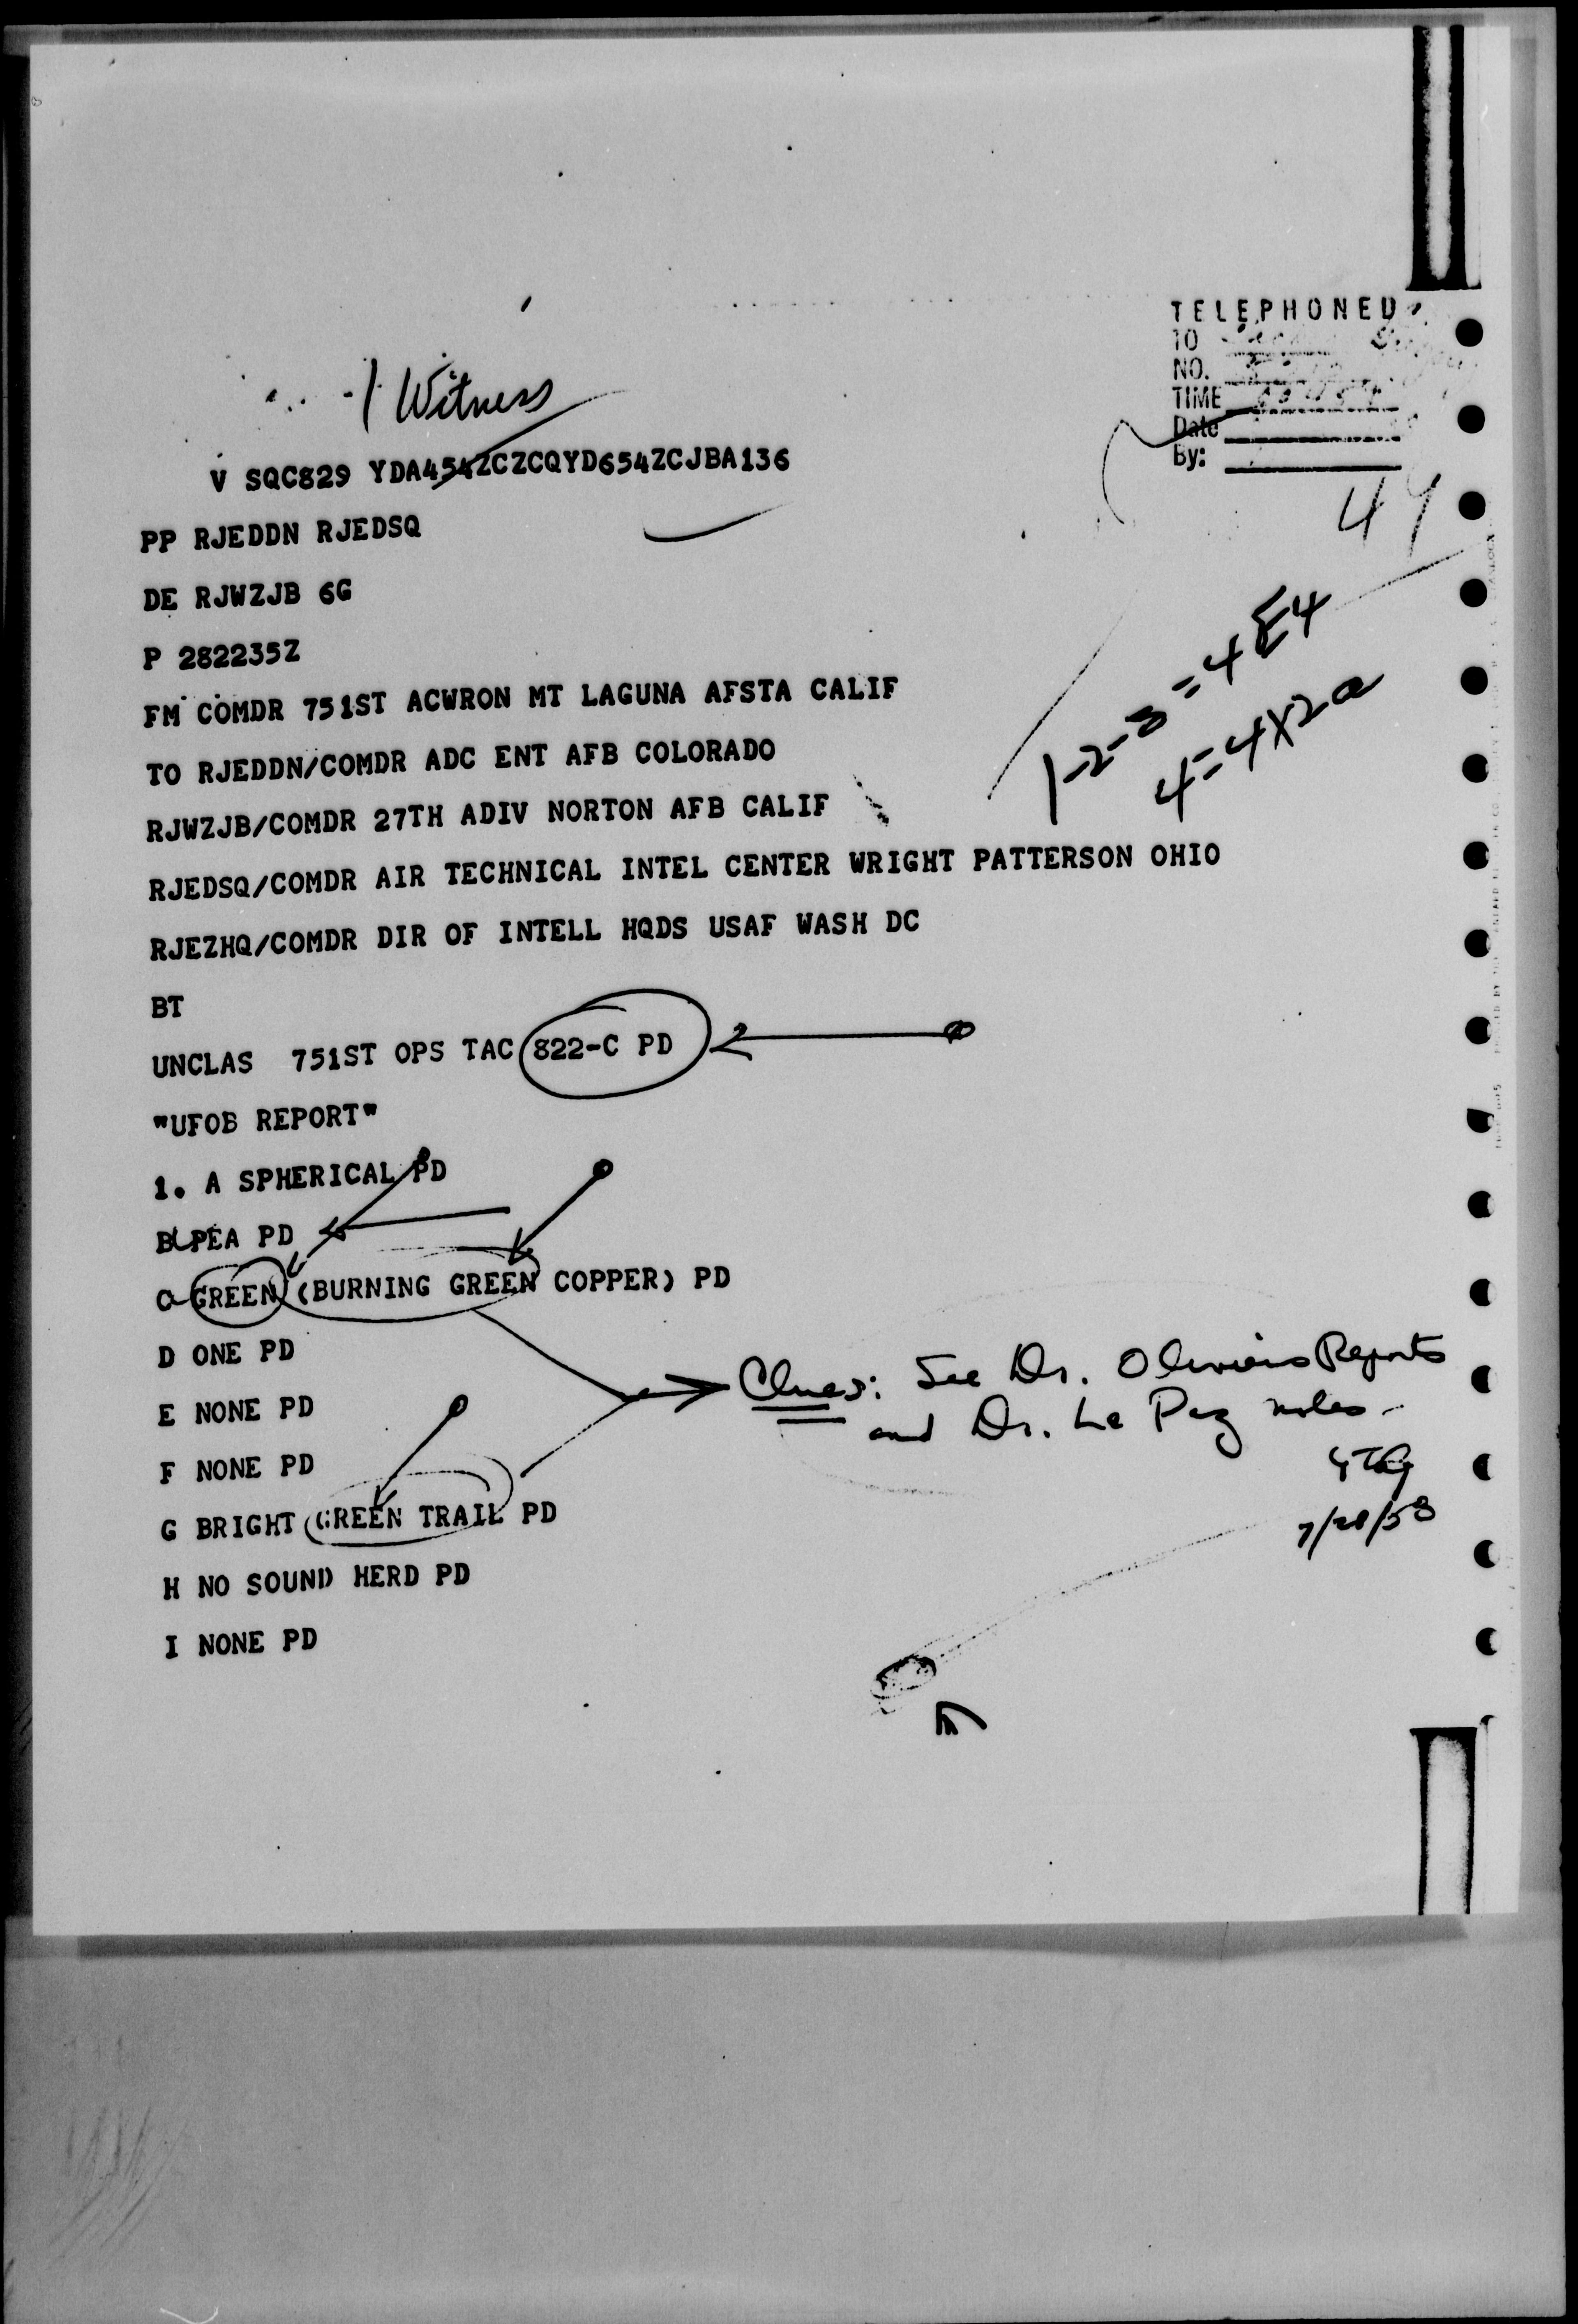 TELEPHONED
TO
NO.
TIME
Date
By:
1 Witness
V SQC829 YDA454ZCZCQYD654ZCJBA136
44
PP RJEDDN RJEDSQ
DE RJWZJB 6G
P 282235Z
1-2-3 = 4 E4
4 = 4X2a
FM COMDR 751ST ACWRON MT LAGUNA AFSTA CALIF
TO RJEDDN/COMDR ADC ENT AFB COLORADO
RJWZJB/COMDR 27TH ADIV NORTON AFB CALIF
RJEDSQ/COMDR AIR TECHNICAL INTEL CENTER WRIGHT PATTERSON OHIO
RJEZHQ/COMDR DIR OF INTELL HQDS USAF WASH DC
BT
UNCLAS 751ST OPS TAC 822-C PD
"UFOB REPORT"
1. A SPHERICAL PD
B PEA PD
C GREEN (BURNING GREEN COPPER) PD
D ONE PD
E NONE PD
F NONE PD
G BRIGHT GREEN TRAIL PD
H NO SOUND HERD PD
I NONE PD
Clues: See Dr. Olivier's Reports
and Dr. La Paz notes-
7/28/58